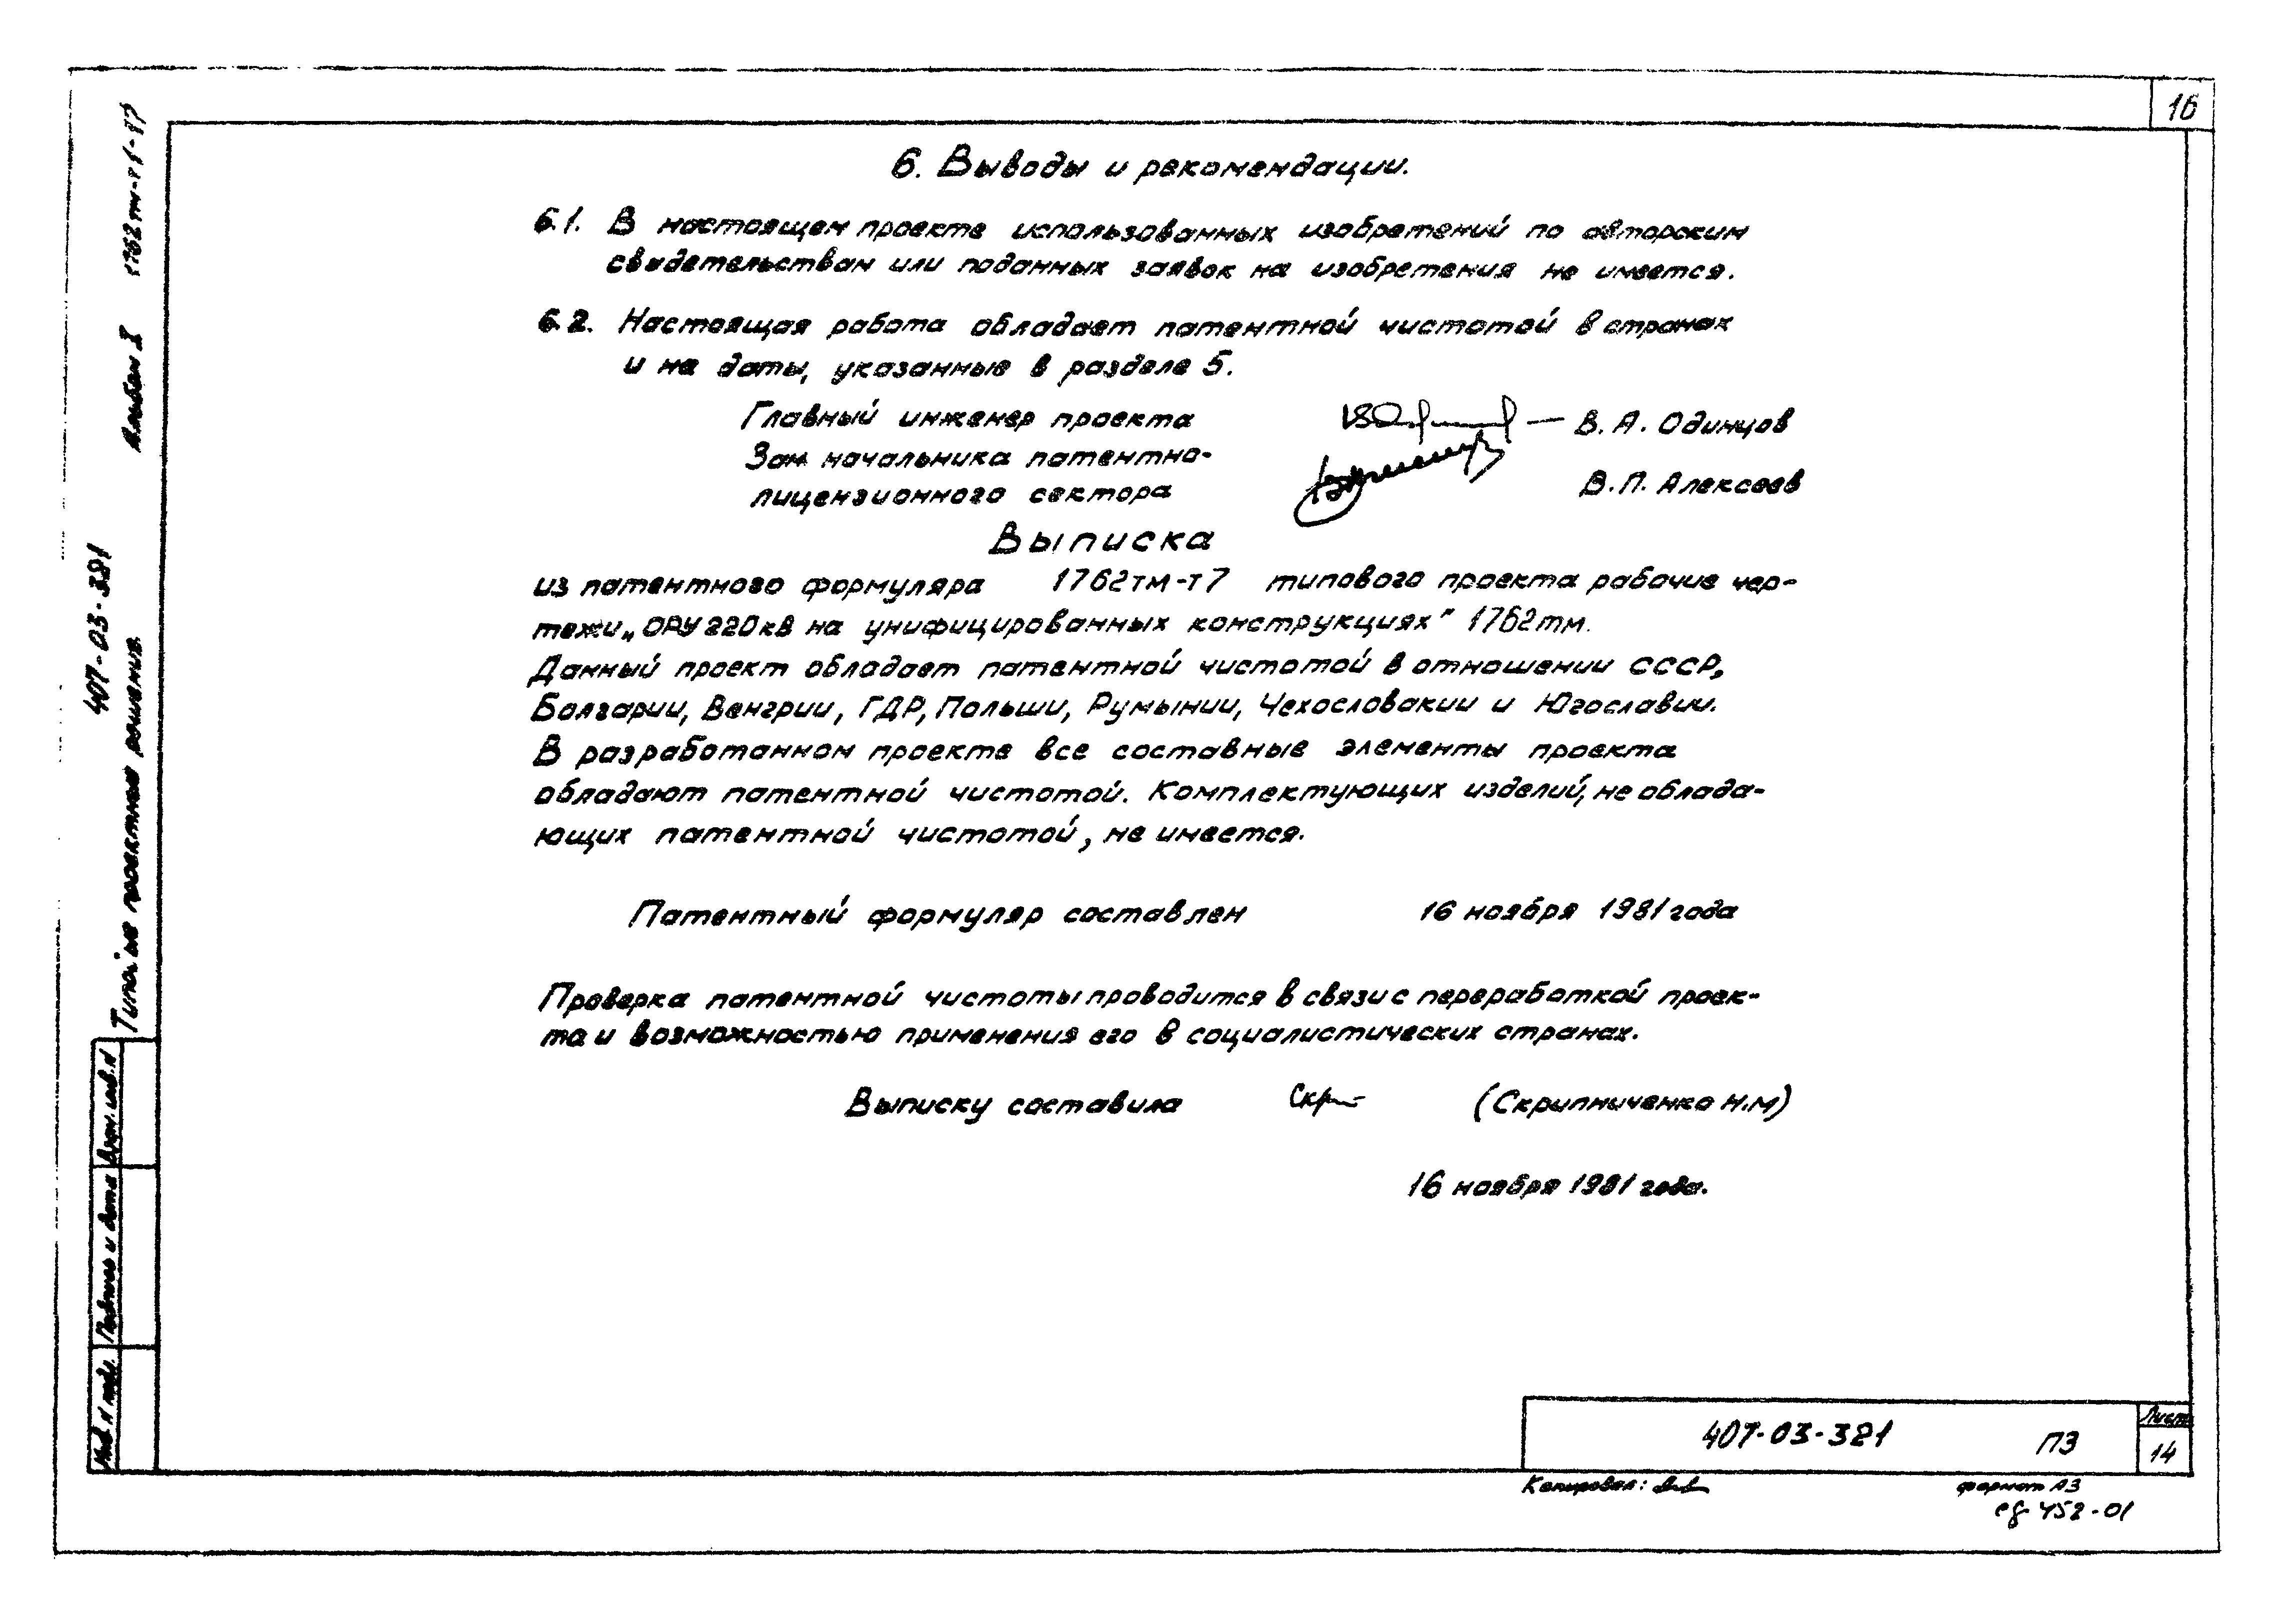 16
6. Выводы и рекомендации.
6.1. В настоящем проекте использованных изобретений по авторским
свидетельствам или поданных заявок на изобретения не имеется.
6.2. Настоящая работа обладает патентной чистотой в странах
и на даты, указанные в разделе 5.
Главный инженер проекта В. А. Одинцов
Зам начальника патентно-
лицензионного сектора В. П. Алексеев
Выписка
из патентного формуляра 1762тм-т7 типового проекта рабочие чер-
тежи „ОРУ 220кВ на унифицированных конструкциях" 1762тм.
Данный проект обладает патентной чистотой в отношении СССР,
Болгарии, Венгрии, ГДР, Польши, Румынии, Чехословакии и Югославии.
В разработанном проекте все составные элементы проекта
обладают патентной чистотой. Комплектующих изделий, не облада-
ющих патентной чистотой, не имеется.
Патентный формуляр составлен 16 ноября 1981 года
Проверка патентной чистоты проводится в связи с переработкой проек-
та и возможностью применения его в социалистических странах.
Выписку составила Скри (Скрипниченко Н.М)
16 ноября 1981 года.
407-03-381
Типовые проектные решения. Альбом I
Взам. инв. №
Подпись и дата
Инв. № подл.
407-03-381 ПЗ
Лист
14
Копировал:
формат А3
452-01